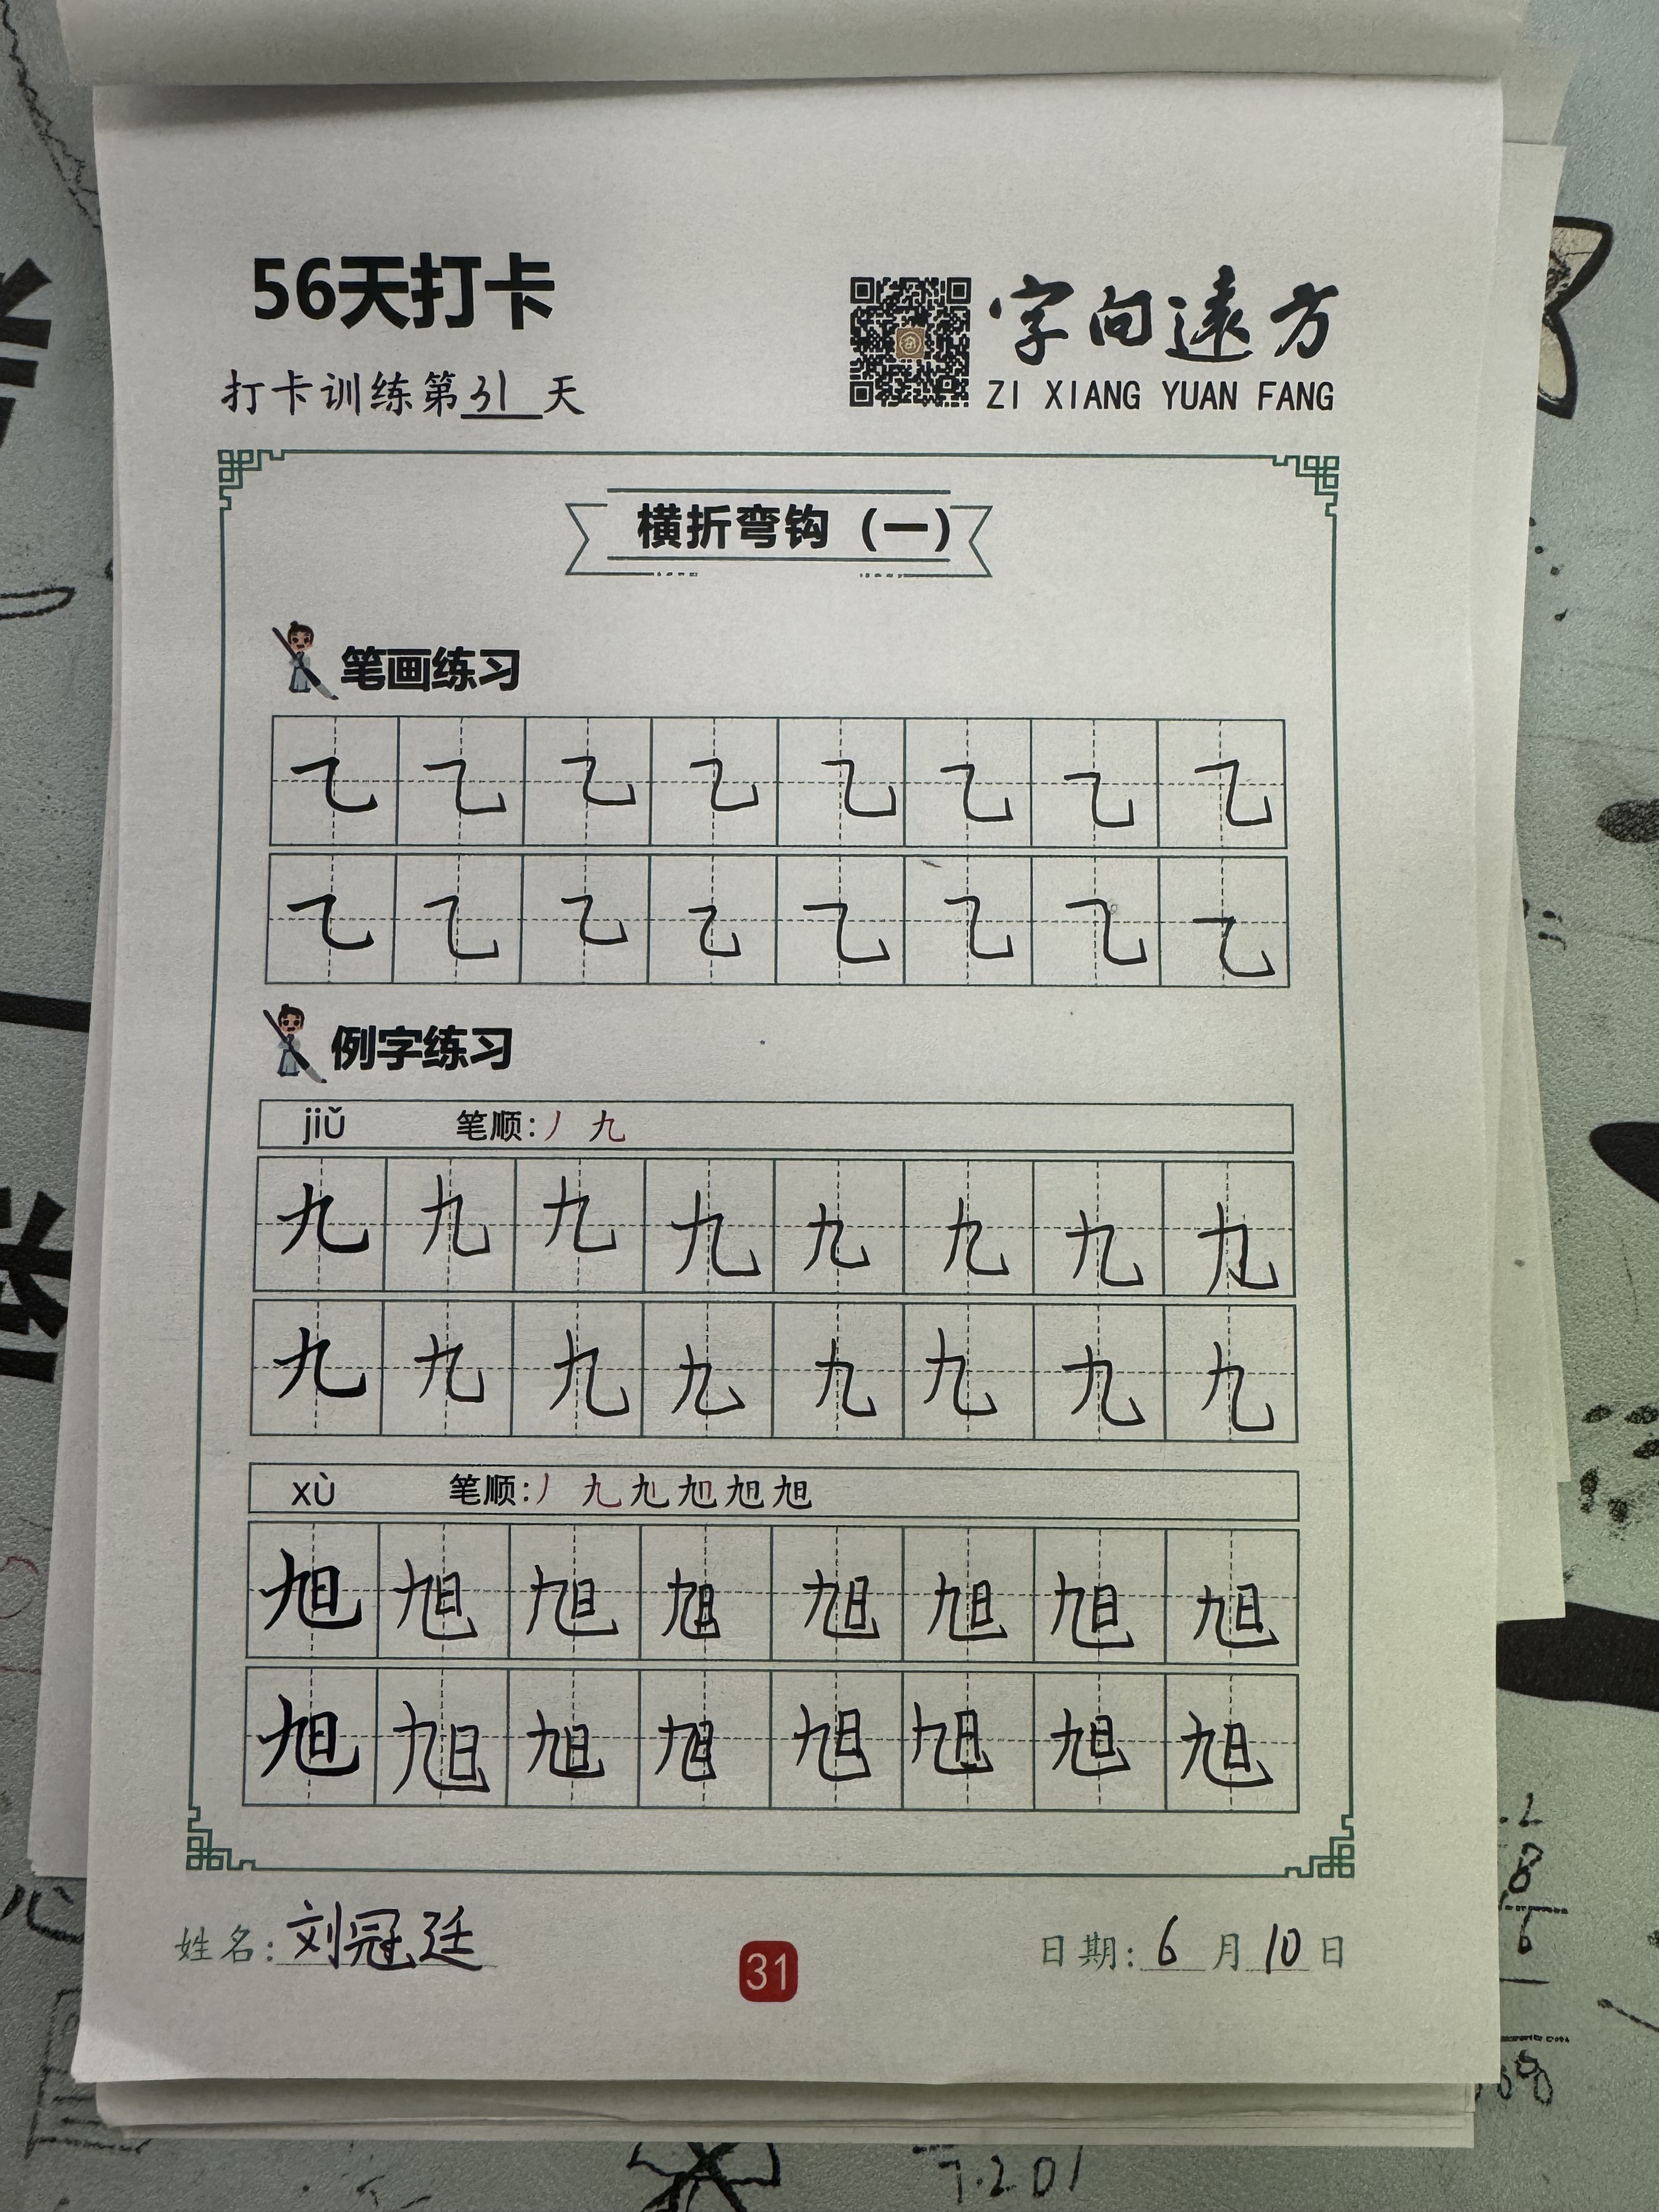 56天打卡
字向遠方
打卡训练第31天
ZI XIANG YUAN FANG
横折弯钩（一）
笔画练习
㇈ ㇈ ㇈ ㇈ ㇈ ㇈ ㇈ ㇈
㇈ ㇈ ㇈ ㇈ ㇈ ㇈ ㇈ ㇈
例字练习
jiǔ 笔顺:丿 九
九 九 九 九 九 九 九 九
九 九 九 九 九 九 九 九
xù 笔顺:丿 九 旭 旭
旭 旭 旭 旭 旭 旭 旭 旭
旭 旭 旭 旭 旭 旭 旭 旭
姓名:刘冠廷
31
日期:6月10日